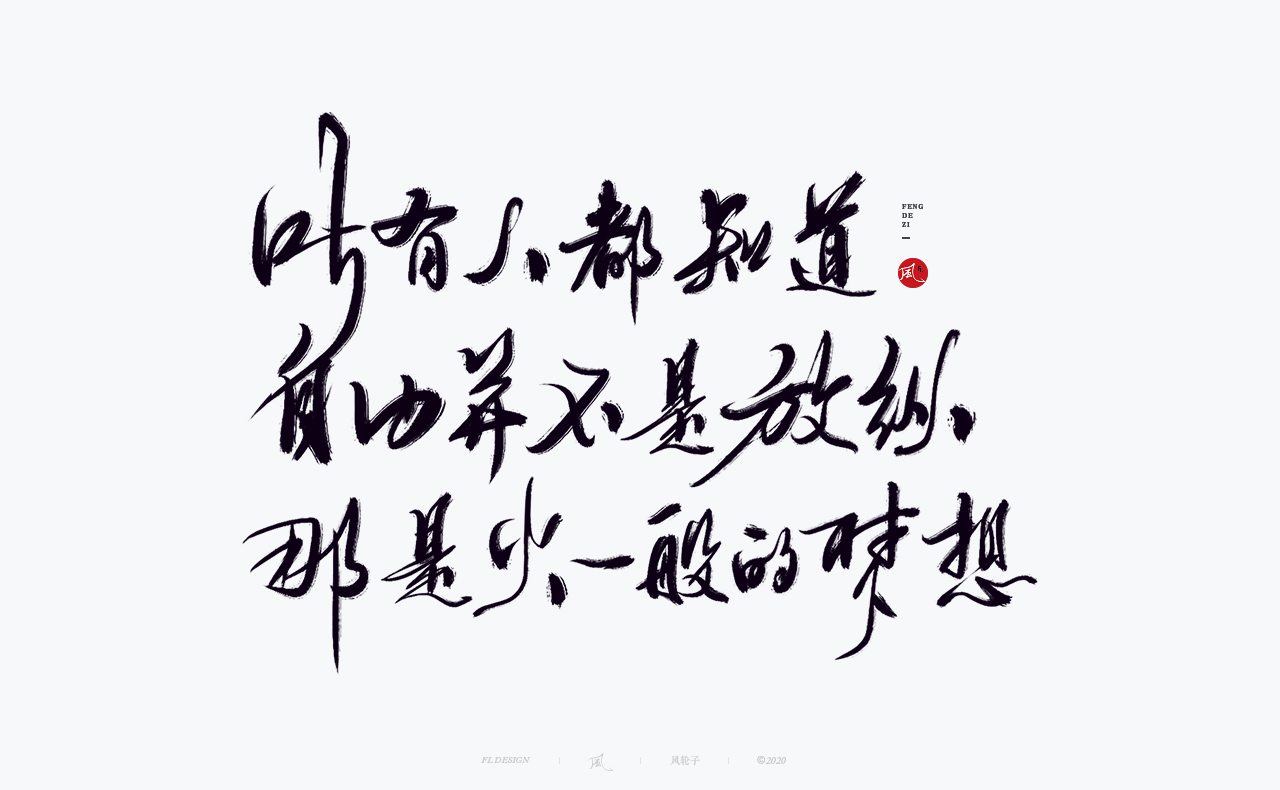 所有人都知道
FENG
DE
ZI
風
自由并不是放纵、
那是火一般的梦想
FL.DESIGN
風
风轮子
©2020